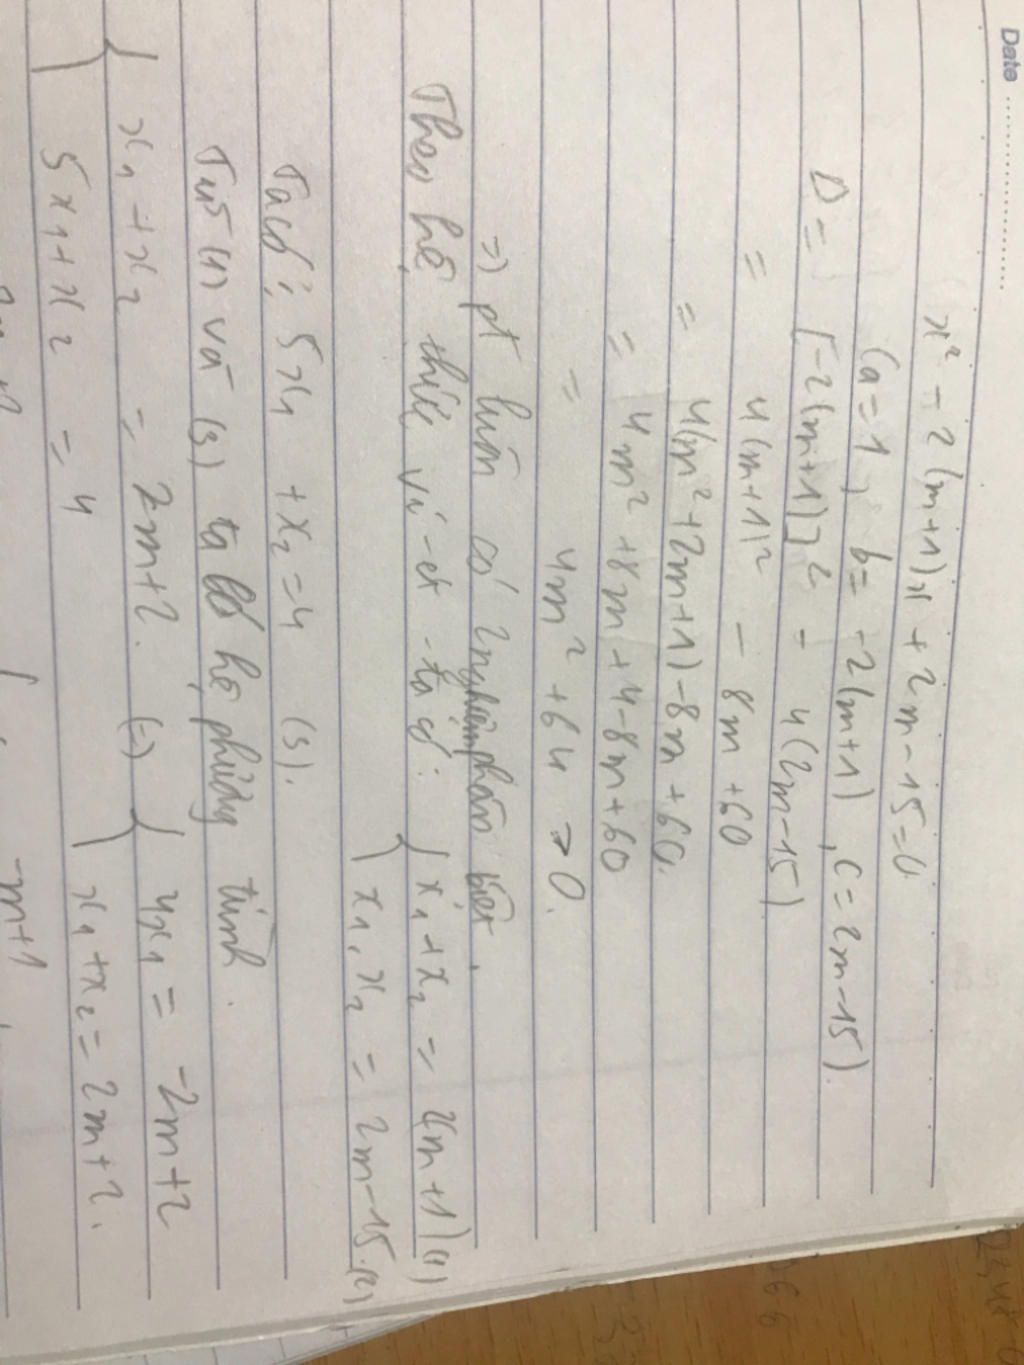 Date
x² - 2(m+1)x + 2m - 15 = 0.
(a = 1, b = -2(m+1), c = 2m - 15).
Δ = [-2(m+1)]² - 4(2m - 15)
= 4(m+1)² - 8m + 60
= 4(m² + 2m + 1) - 8m + 60.
= 4m² + 8m + 4 - 8m + 60
= 4m² + 64 > 0.
=> pt luôn có 2 nghiệm phân biệt.
Theo hệ thức vi-et ta có: { x₁ + x₂ = 2(m+1) (1)
x₁.x₂ = 2m - 15. (2)
Ta có: 5x₁ + x₂ = 4 (3).
Từ (1) và (3) ta có hệ phương trình.
{ x₁ + x₂ = 2m + 2. (=) { 4x₁ = -2m + 2
5x₁ + x₂ = 4 x₁ + x₂ = 2m + 2.
-m+1